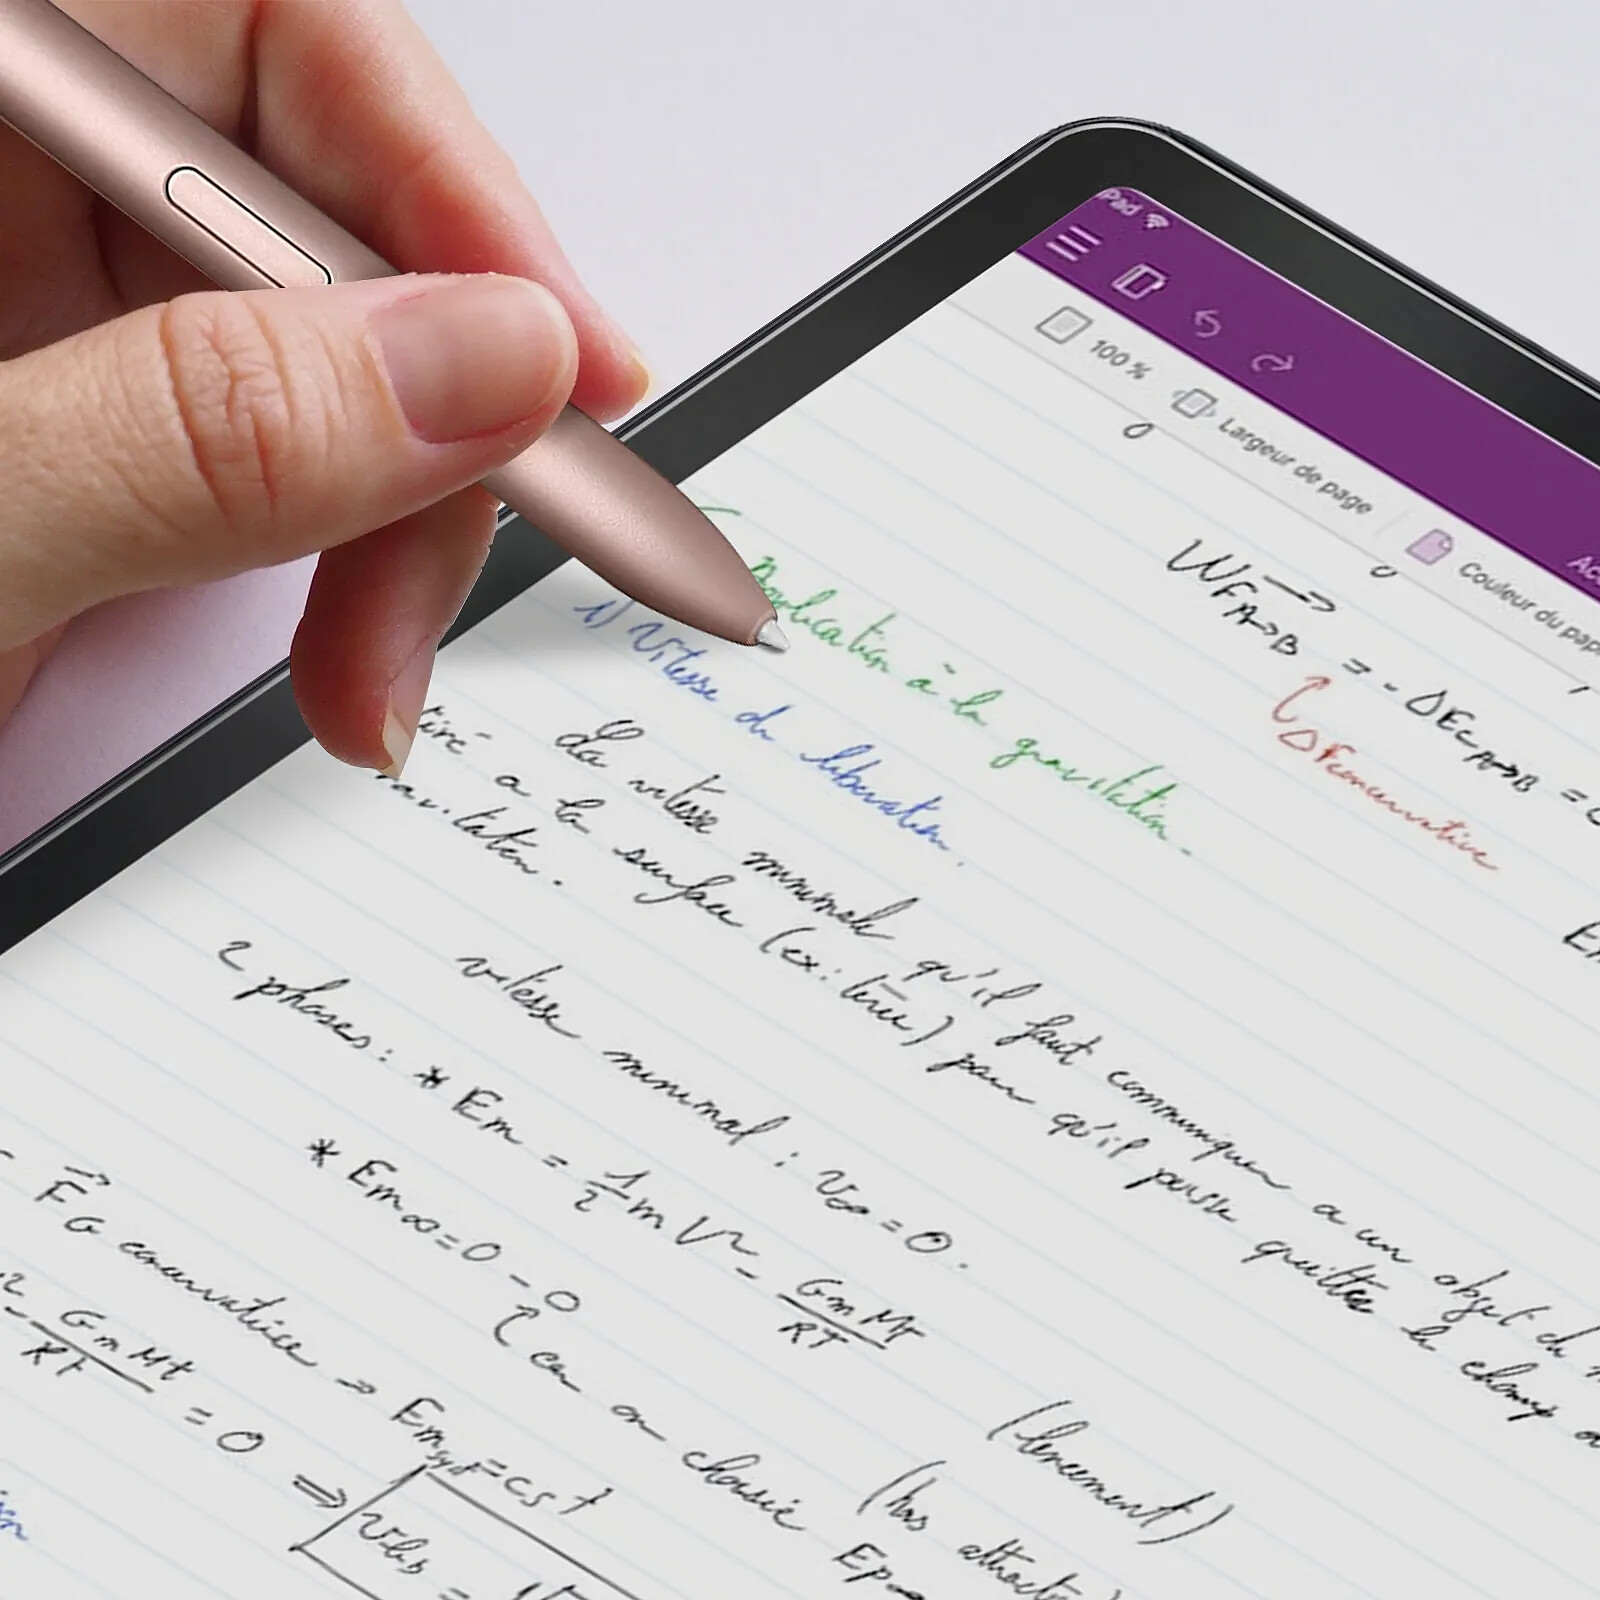 iPad
100 %
Largeur de page
Couleur du pap
W F A→B = - ΔEc A→B =
Δ F conservative
Application à la gravitation.
1) Vitesse de libération.
La vitesse minimale qu'il faut communiquer a un objet de
tiré a la surface (ex: terre) pour qu'il puisse quitter le champ
vitesse minimal : v∞ = 0.
2 phases : * Em = 1/2 m V² - GmMT/RT (lancement)
* Em∞ = 0 - 0 (hors attract
car on choisie Ep∞
FG conservative ⇒ Em syst = cst
- GmMt/Rt = 0 ⇒ Vlib = √